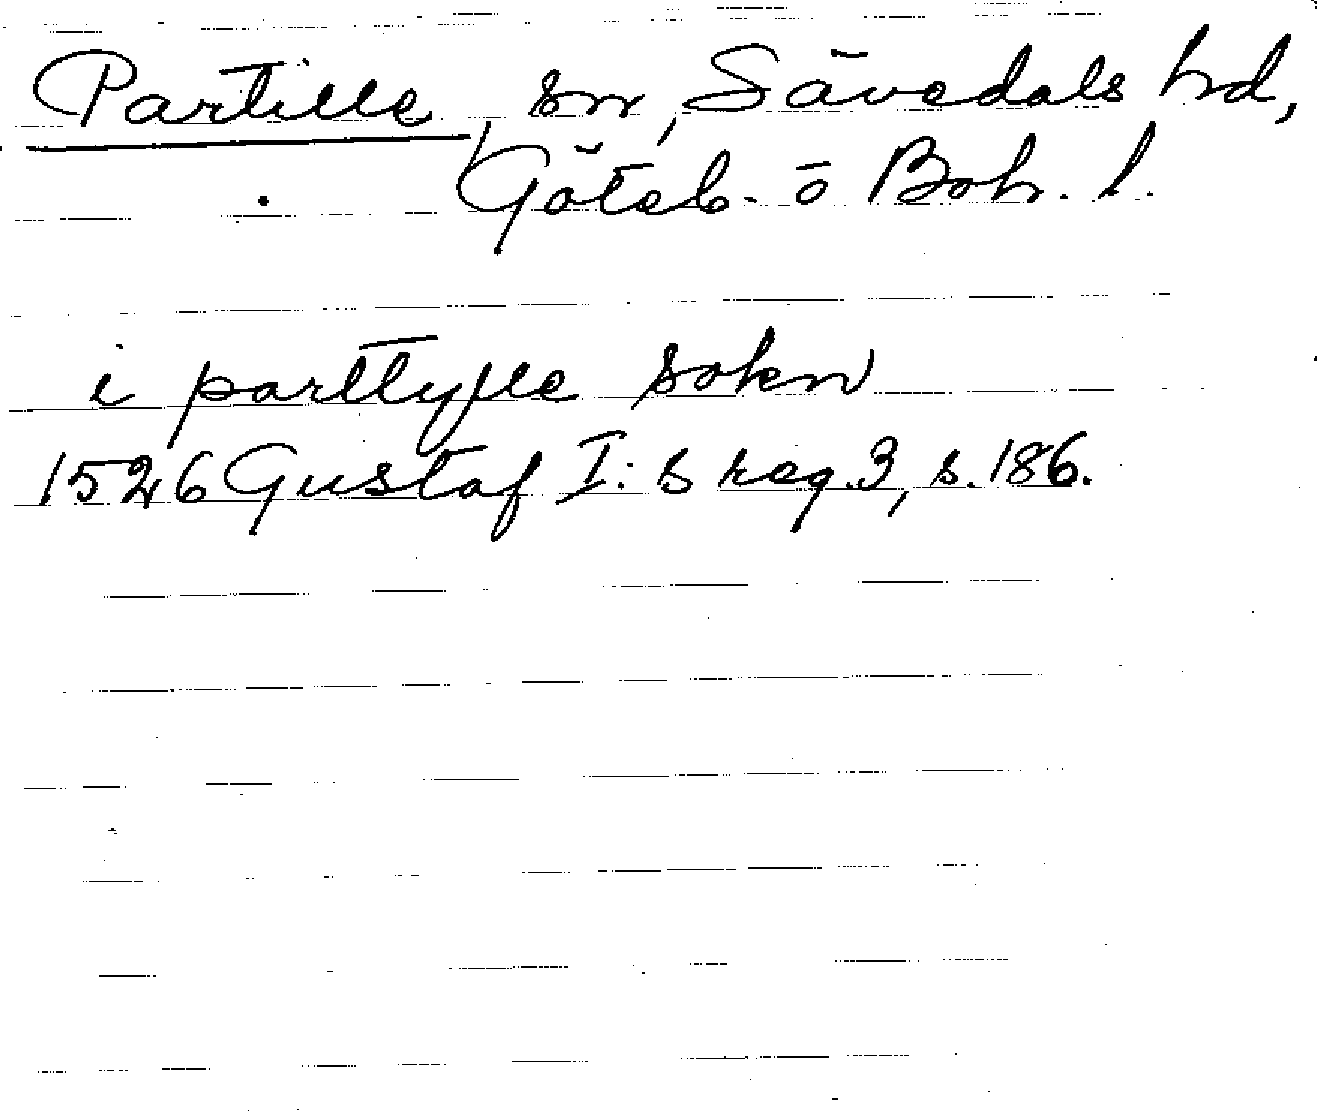 Partille, sn, Sävedals hd,
Göteb. o Boh. l.
i parttylle sokn
1526 Gustaf I:s reg. 3, s. 186.